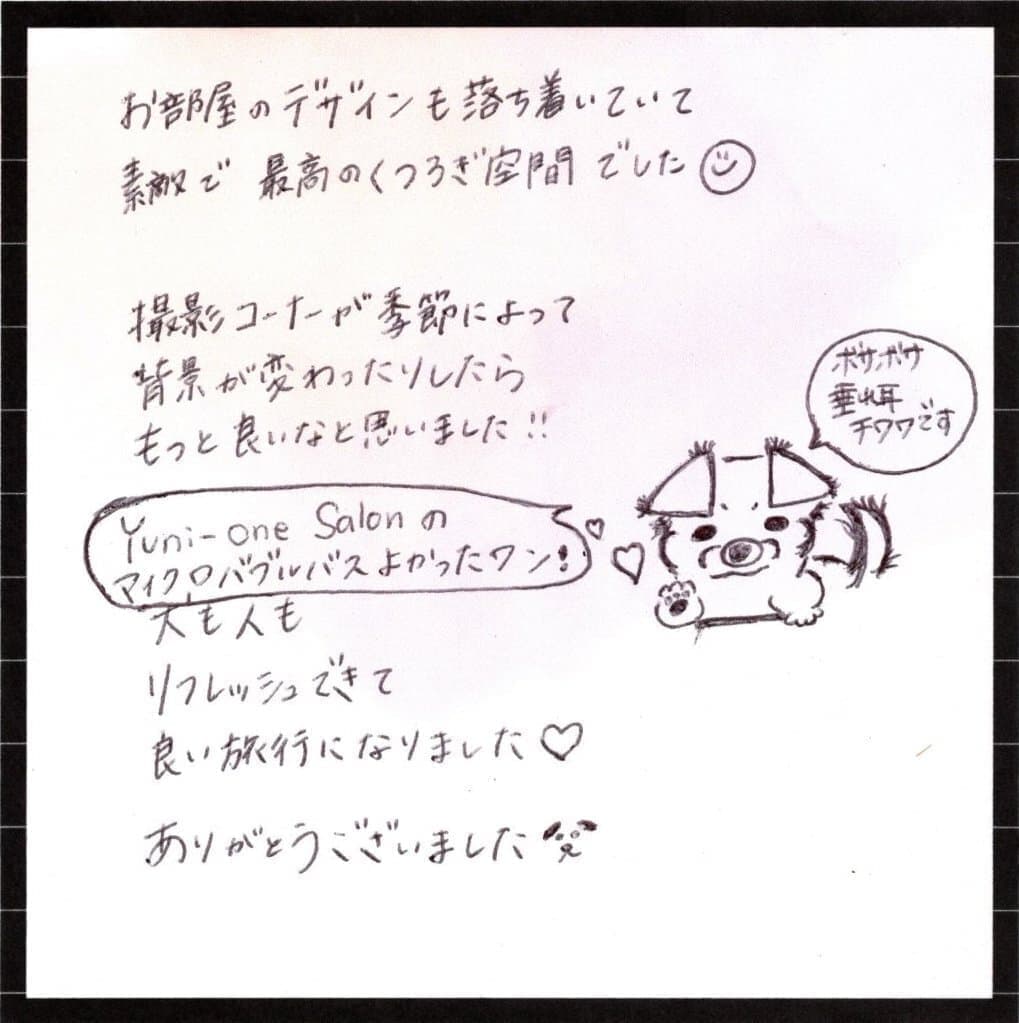 お部屋のデザインも落ち着いていて
素敵で 最高のくつろぎ空間 でした
撮影コーナーが季節によって
背景が変わったりしたら
もっと良いなと思いました!!
ボサボサ
垂れ耳
チワワです
Yuni-one Salonの
マイクロバブルバスよかったワン!
犬も人も
リフレッシュできて
良い旅行になりました♡
ありがとうございました